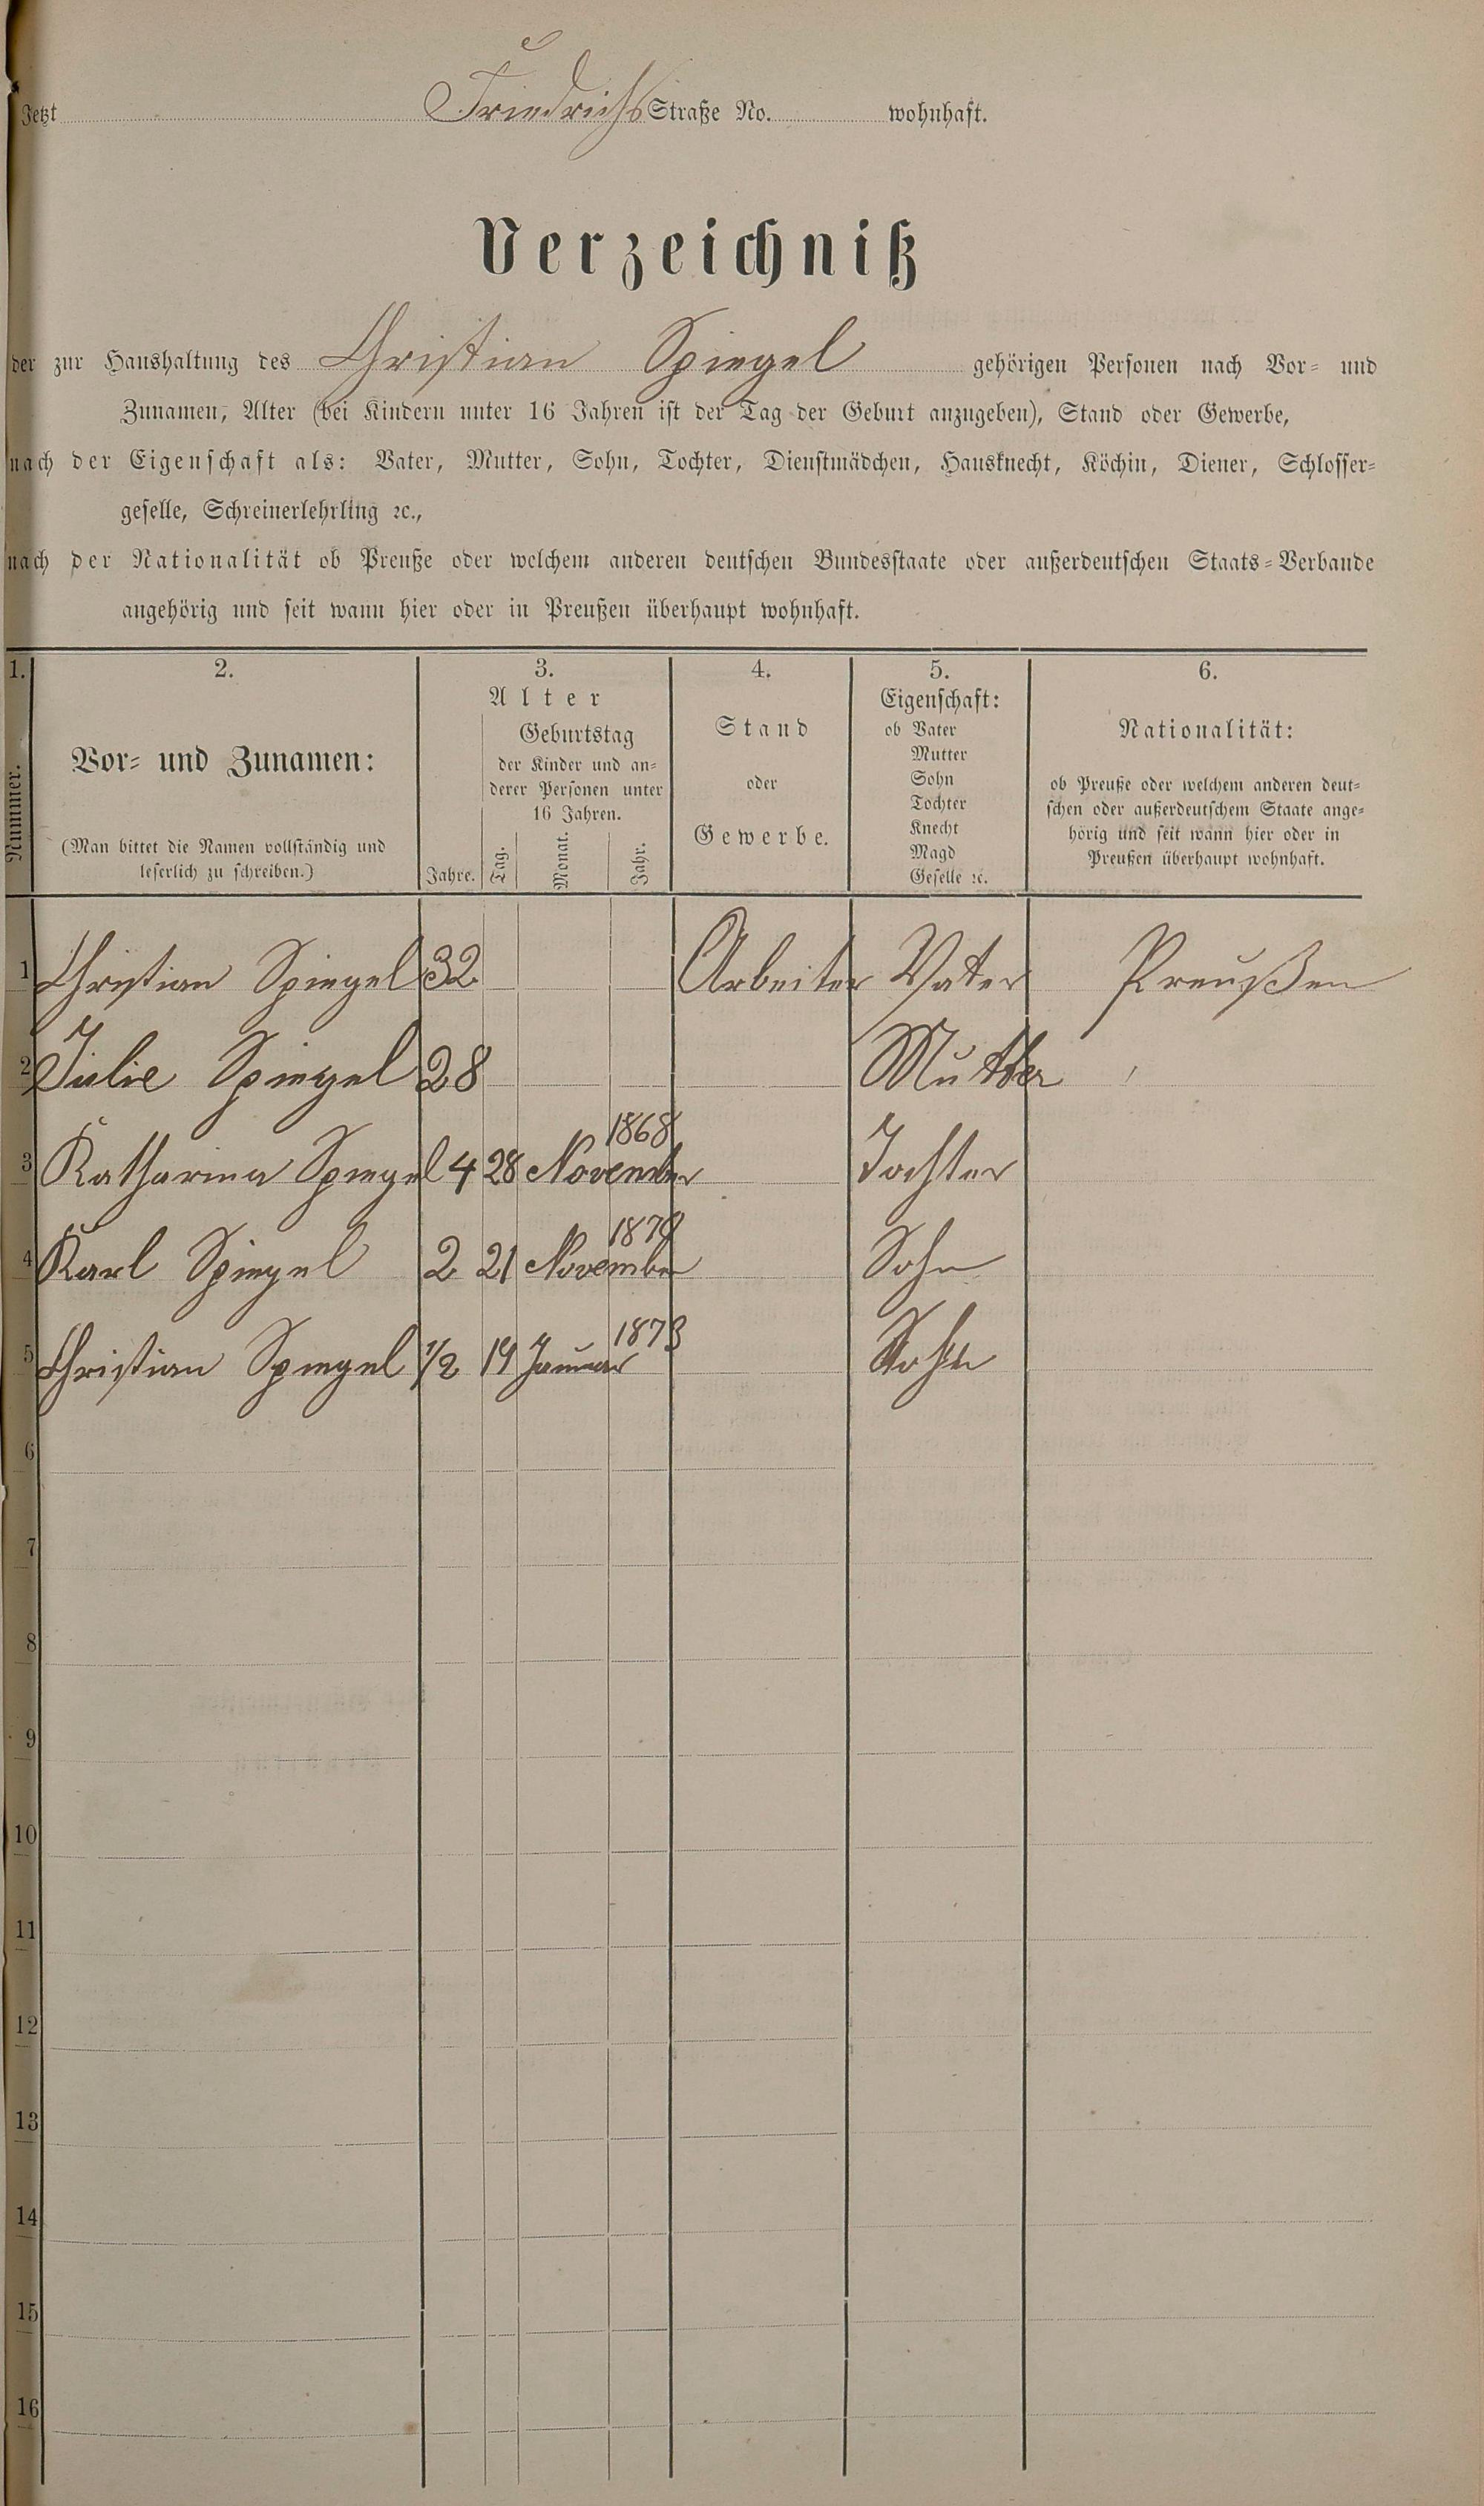 Jetzt Friedrichs Straße No. wohnhaft.
Verzeichniß
der zur Haushaltung des Christian Spiegel gehörigen Personen nach Vor- und
Zunamen, Alter (bei Kindern unter 16 Jahren ist der Tag der Geburt anzugeben), Stand oder Gewerbe,
nach der Eigenschaft als: Vater, Mutter, Sohn, Tochter, Dienstmädchen, Hausknecht, Köchin, Diener, Schlosser-
geselle, Schreinerlehrling ꝛc.,
nach der Nationalität ob Preuße oder welchem anderen deutschen Bundesstaate oder außerdeutschen Staats-Verbande
angehörig und seit wann hier oder in Preußen überhaupt wohnhaft.
1.
Nummer.
2.
Vor- und Zunamen:
(Man bittet die Namen vollständig und
leserlich zu schreiben.)
3.
Alter
Jahre.
Geburtstag
der Kinder und an-
derer Personen unter
16 Jahren.
Tag.
Monat.
Jahr.
4.
Stand
oder
Gewerbe.
5.
Eigenschaft:
ob Vater
Mutter
Sohn
Tochter
Knecht
Magd
Geselle ꝛc.
6.
Nationalität:
ob Preuße oder welchem anderen deut-
schen oder außerdeutschem Staate ange-
hörig und seit wann hier oder in
Preußen überhaupt wohnhaft.
1 Christian Spiegel 32 Arbeiter Vater Preußen
2 Julie Spiegel 28 Mutter
3 Katharina Spiegel 4 28 November 1868 Tochter
4 Karl Spiegel 2 21 November Sohn
5 Christian Spiegel 1/2 14 Januar 1873 Sohn
6
7
8
9
10
11
12
13
14
15
16